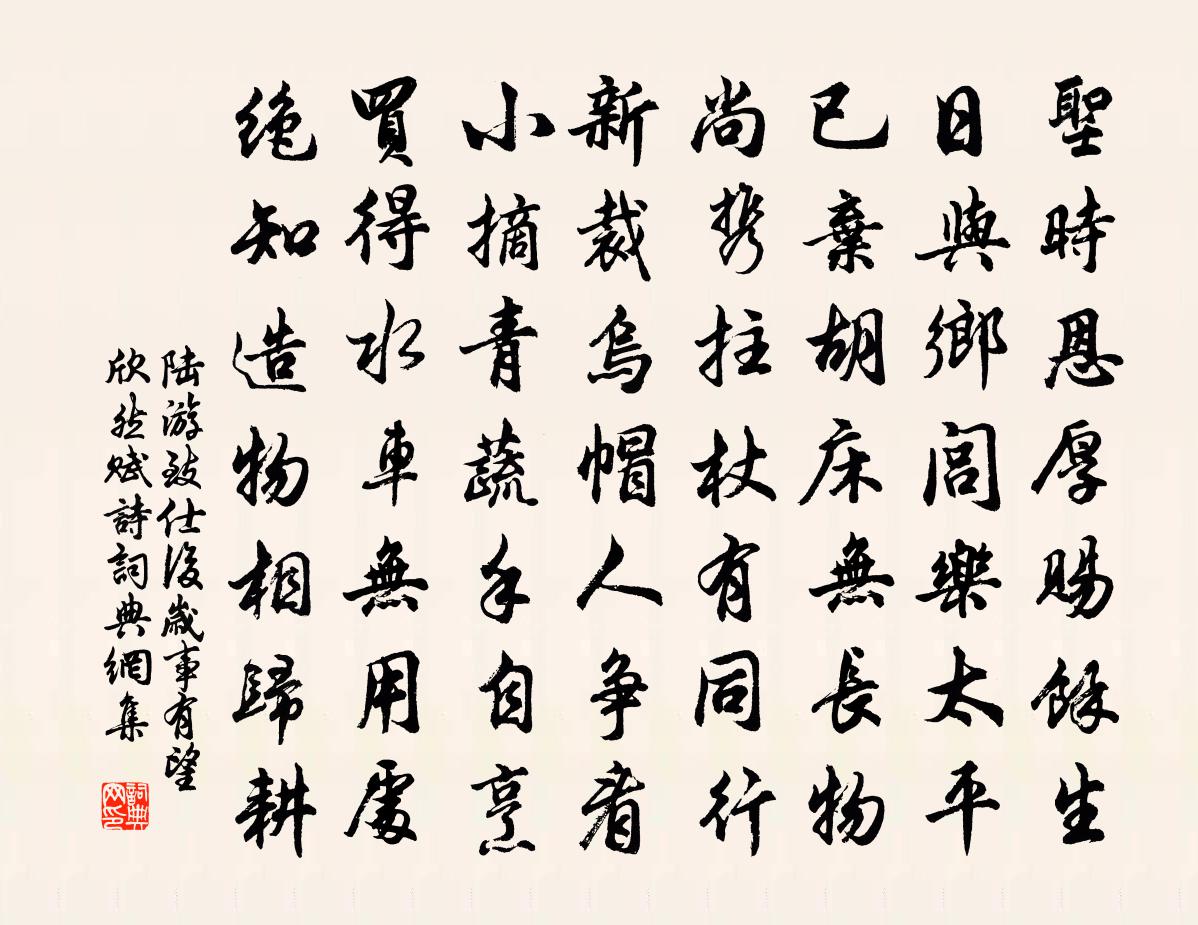 聖時恩厚賜餘生
日與鄉閭樂太平
已棄胡床無長物
尚携拄杖有同行
新裁烏帽人爭看
小摘青蔬手自烹
買得水車無用處
絶知造物相歸耕
陸游致仕後歲事有望
欣然賦詩詞典網集
詞典
网印